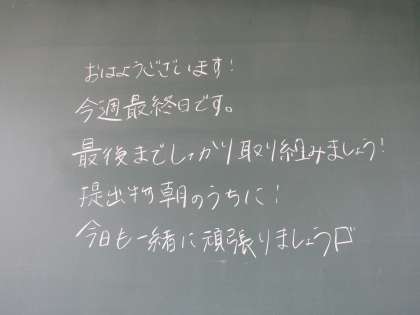 おはようございます!
今週最終日です。
最後までしっかり取り組みましょう!
提出物朝のうちに!
今日も一緒に頑張りましょう